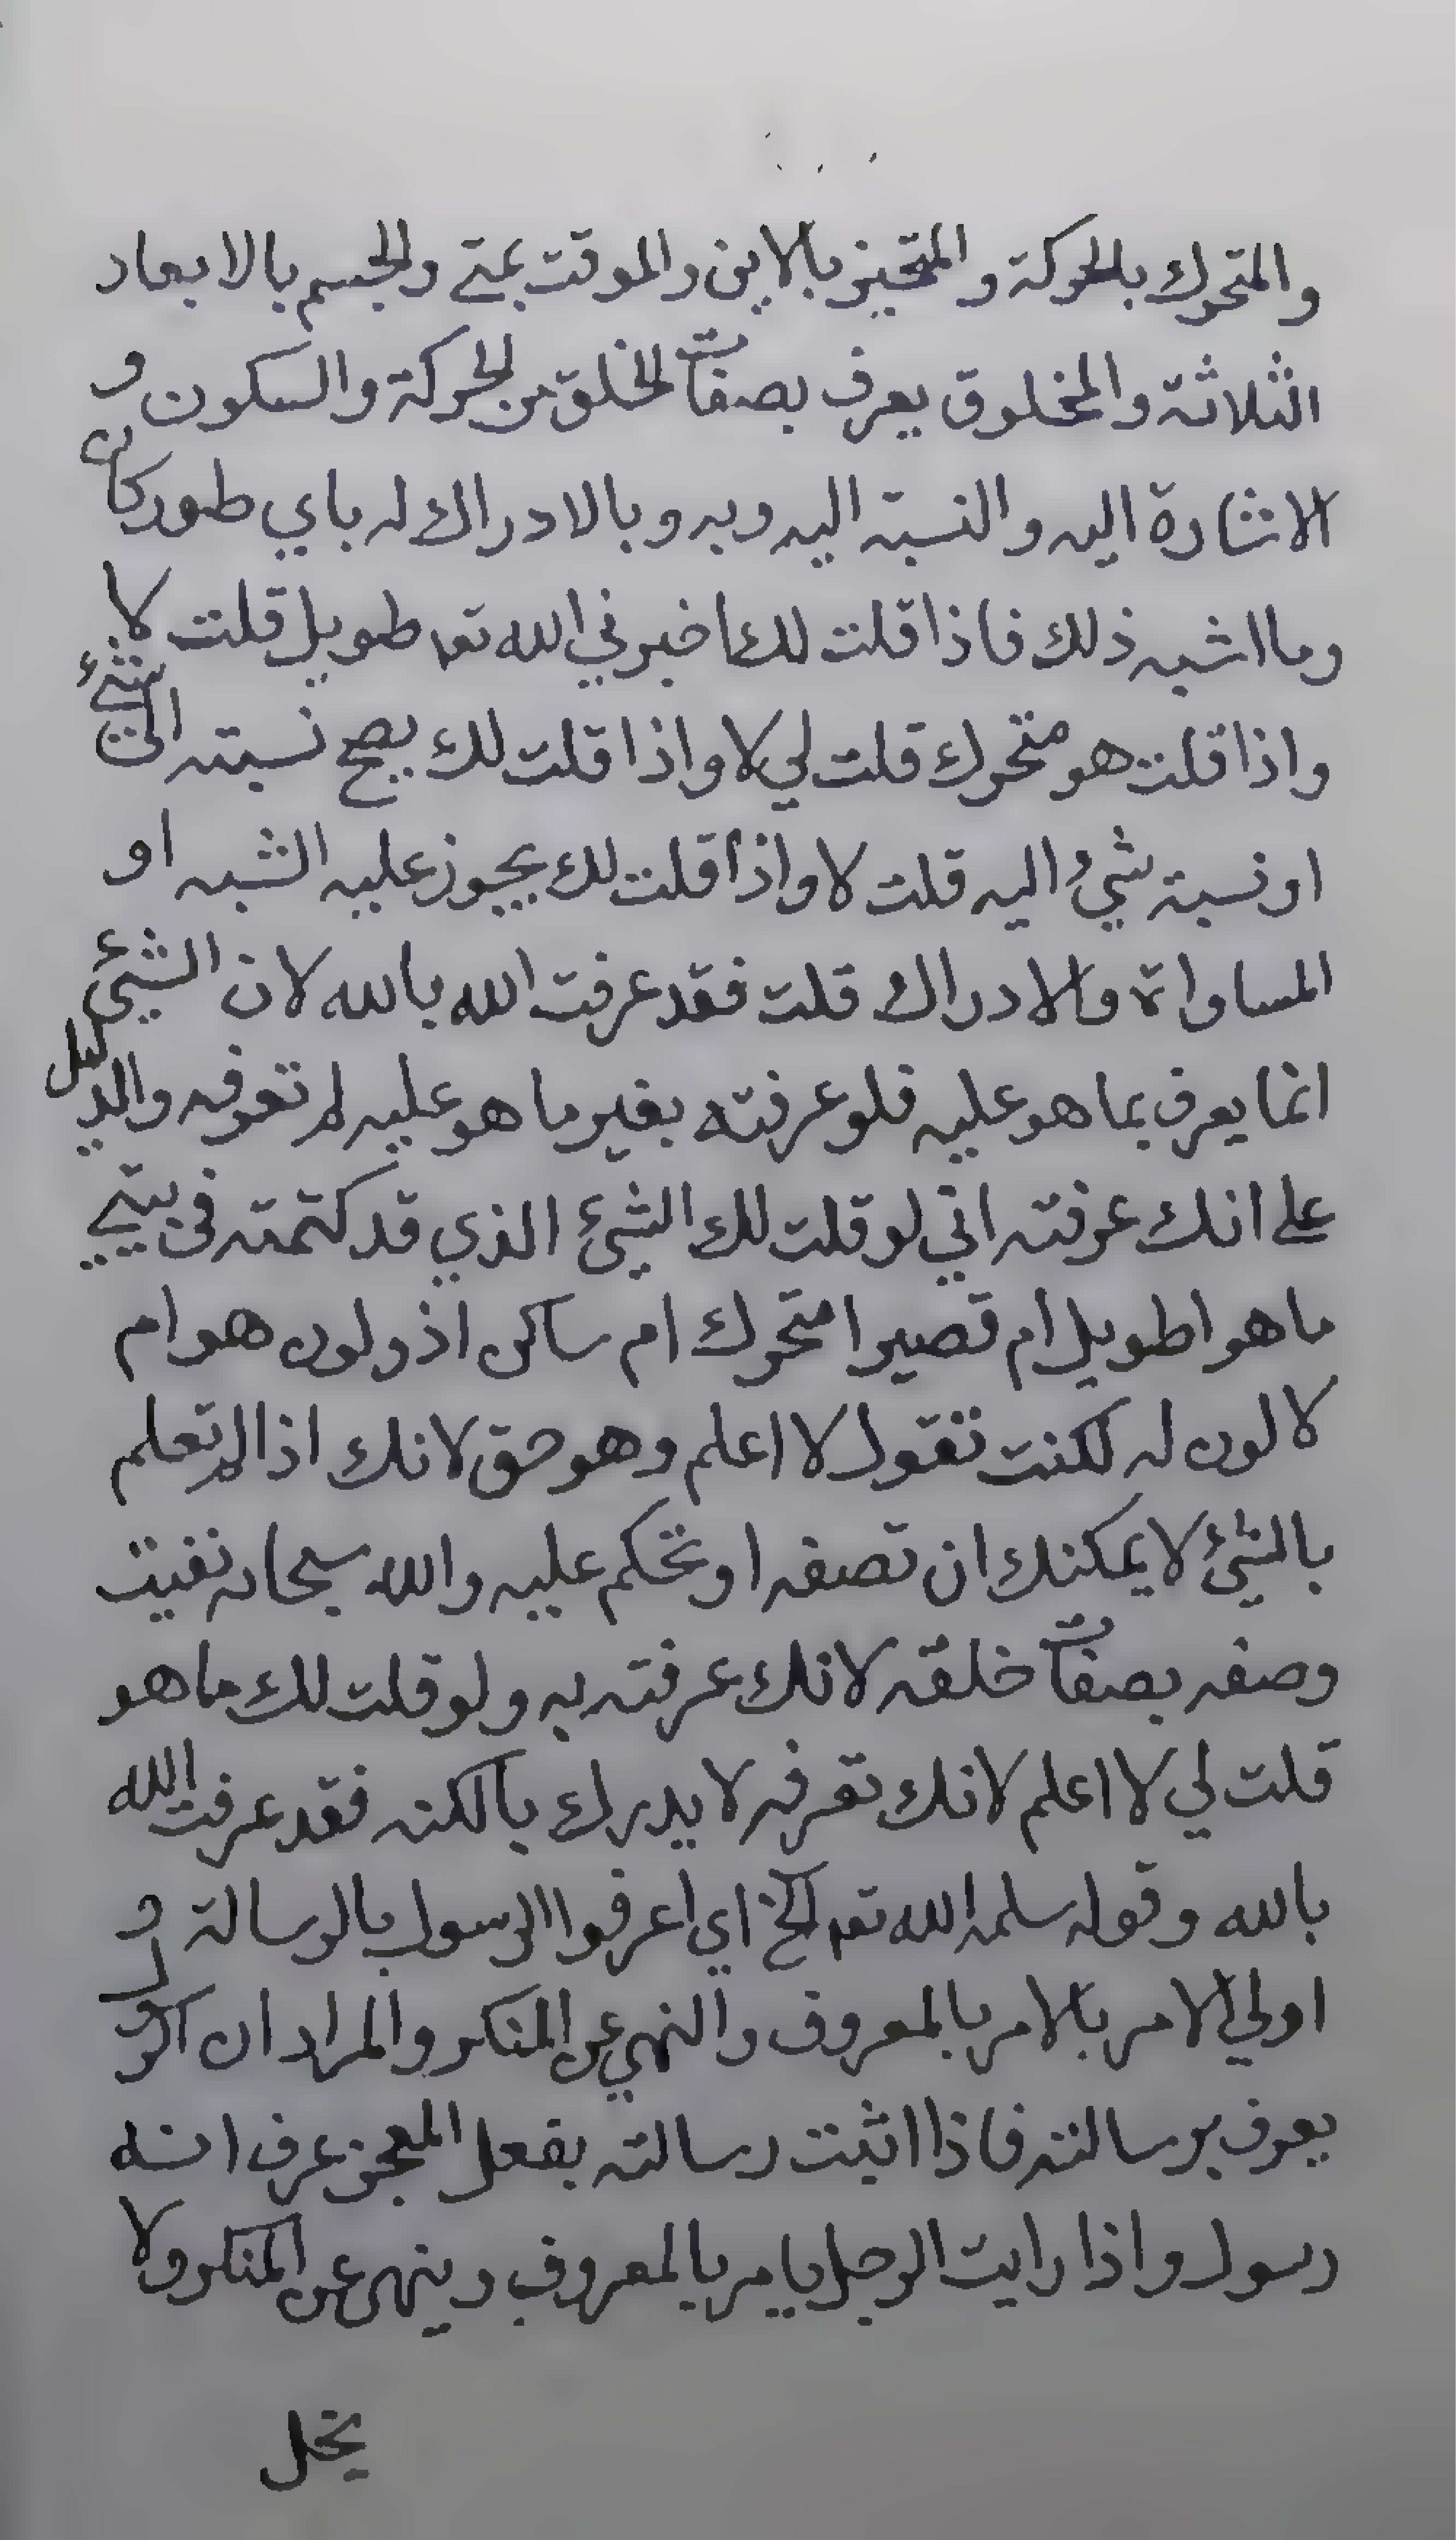 والمتحرك بالحركة والمتحيز بالاين والموقت بمتى والجسم بالابعاد
الثلاثة والمخلوق يعرف بصفات الخلق من الحركة والسكون و
الاشارة اليه والنسبة اليه وبه وبالادراك له باي طور كان
وما اشبه ذلك فاذا قلت لك اخبرني الله تعا طويل قلت لا
واذا قلت هو متحرك قلت لي لا واذا قلت لك يصح نسبته الى شئ
او نسبة شئ اليه قلت لا واذا قلت لك يجوز عليه الشبه او
المساواة والادراك قلت فقد عرفت الله بالله لان الشئ
انما يعرف بما هو عليه فلو عرفته بغير ما هو عليه لم تعرفه والدليل
على انك عرفته اني لو قلت لك الشئ الذي قد كتمته في بيتي
ما هو اطويل ام قصير امتحرك ام ساكن اذو لون هو ام
لا لون له لكنت تقول لا اعلم وهو حق لانك اذا لم تعلم
بالشئ لا يمكنك ان تصفه او تحكم عليه والله سبحانه نفيت
وصفه بصفات خلقه لانك عرفته به ولو قلت لك ما هو
قلت لي لا اعلم لانك تعرفه لا يدرك بالكنه فقد عرفت الله
بالله وقوله سلمه الله تعا الخ اي اعرفوا الرسول بالرسالة و
اولي الامر بالامر بالمعروف والنهي عن المنكر والمراد ان الرسول
يعرف برسالته فاذا اثبت رسالته بفعل المعجز عرف انه
رسول واذا رايت الرجل يامر بالمعروف وينهى عن المنكر ولا
يخل